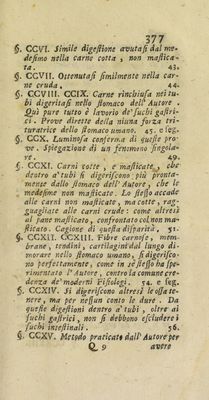 377
§. CCVI. Simile digestione avutasi dal me-
desimo nella carne cotta, non mastica-
ta. 43.
§. CCVII. Ottenutasi similmente nella car-
ne cruda. 44.
§. CCVIII. CCIX. Carne rinchiusa nei tu-
bi digeritasi nello stomaco dell' Autore.
Qui pure tutto è lavoro de' suchi gastri-
ci. Prove dirette della niuna forza tri-
turatrice dello stomaco umano. 45. e seg.
§. CCX. Luminosa conferma di queste pro-
ve. Spiegazione di un fenomeno singola-
re. 49.
§. CCXI. Carni cotte, e masticate, che
dentro a' tubi si digeriscono più pronta-
mente dallo stomaco dell' Autore, che le
medesime non masticate. Lo stesso accade
alle carni non masticate, ma cotte, rag-
guagliate alle carni crude: come altresì
al pane masticato, confrontato col non ma-
sticato. Cagione di questa disparità.
§. CCXII. CCXIII. Fibre carnose, mem-
brane, tendini, cartilagini dal lungo di-
morare nello stomaco umano, si digerisco-
no perfettamente, come in se stesso ha spe-
rimentato l' Autore, contro la comune cre-
denza de' moderni Fisiologi. 54. e seg.
§. CCXIV. Si digeriscono altresì le ossa te-
nere, ma per nessun conto le dure. Da
queste digestioni dentro a' tubi, oltre ai
suchi gastrici, non si debbono escludere i
suchi intestinali. 56.
§. CCXV. Metodo praticato dall' Autore per
Q 9 avere